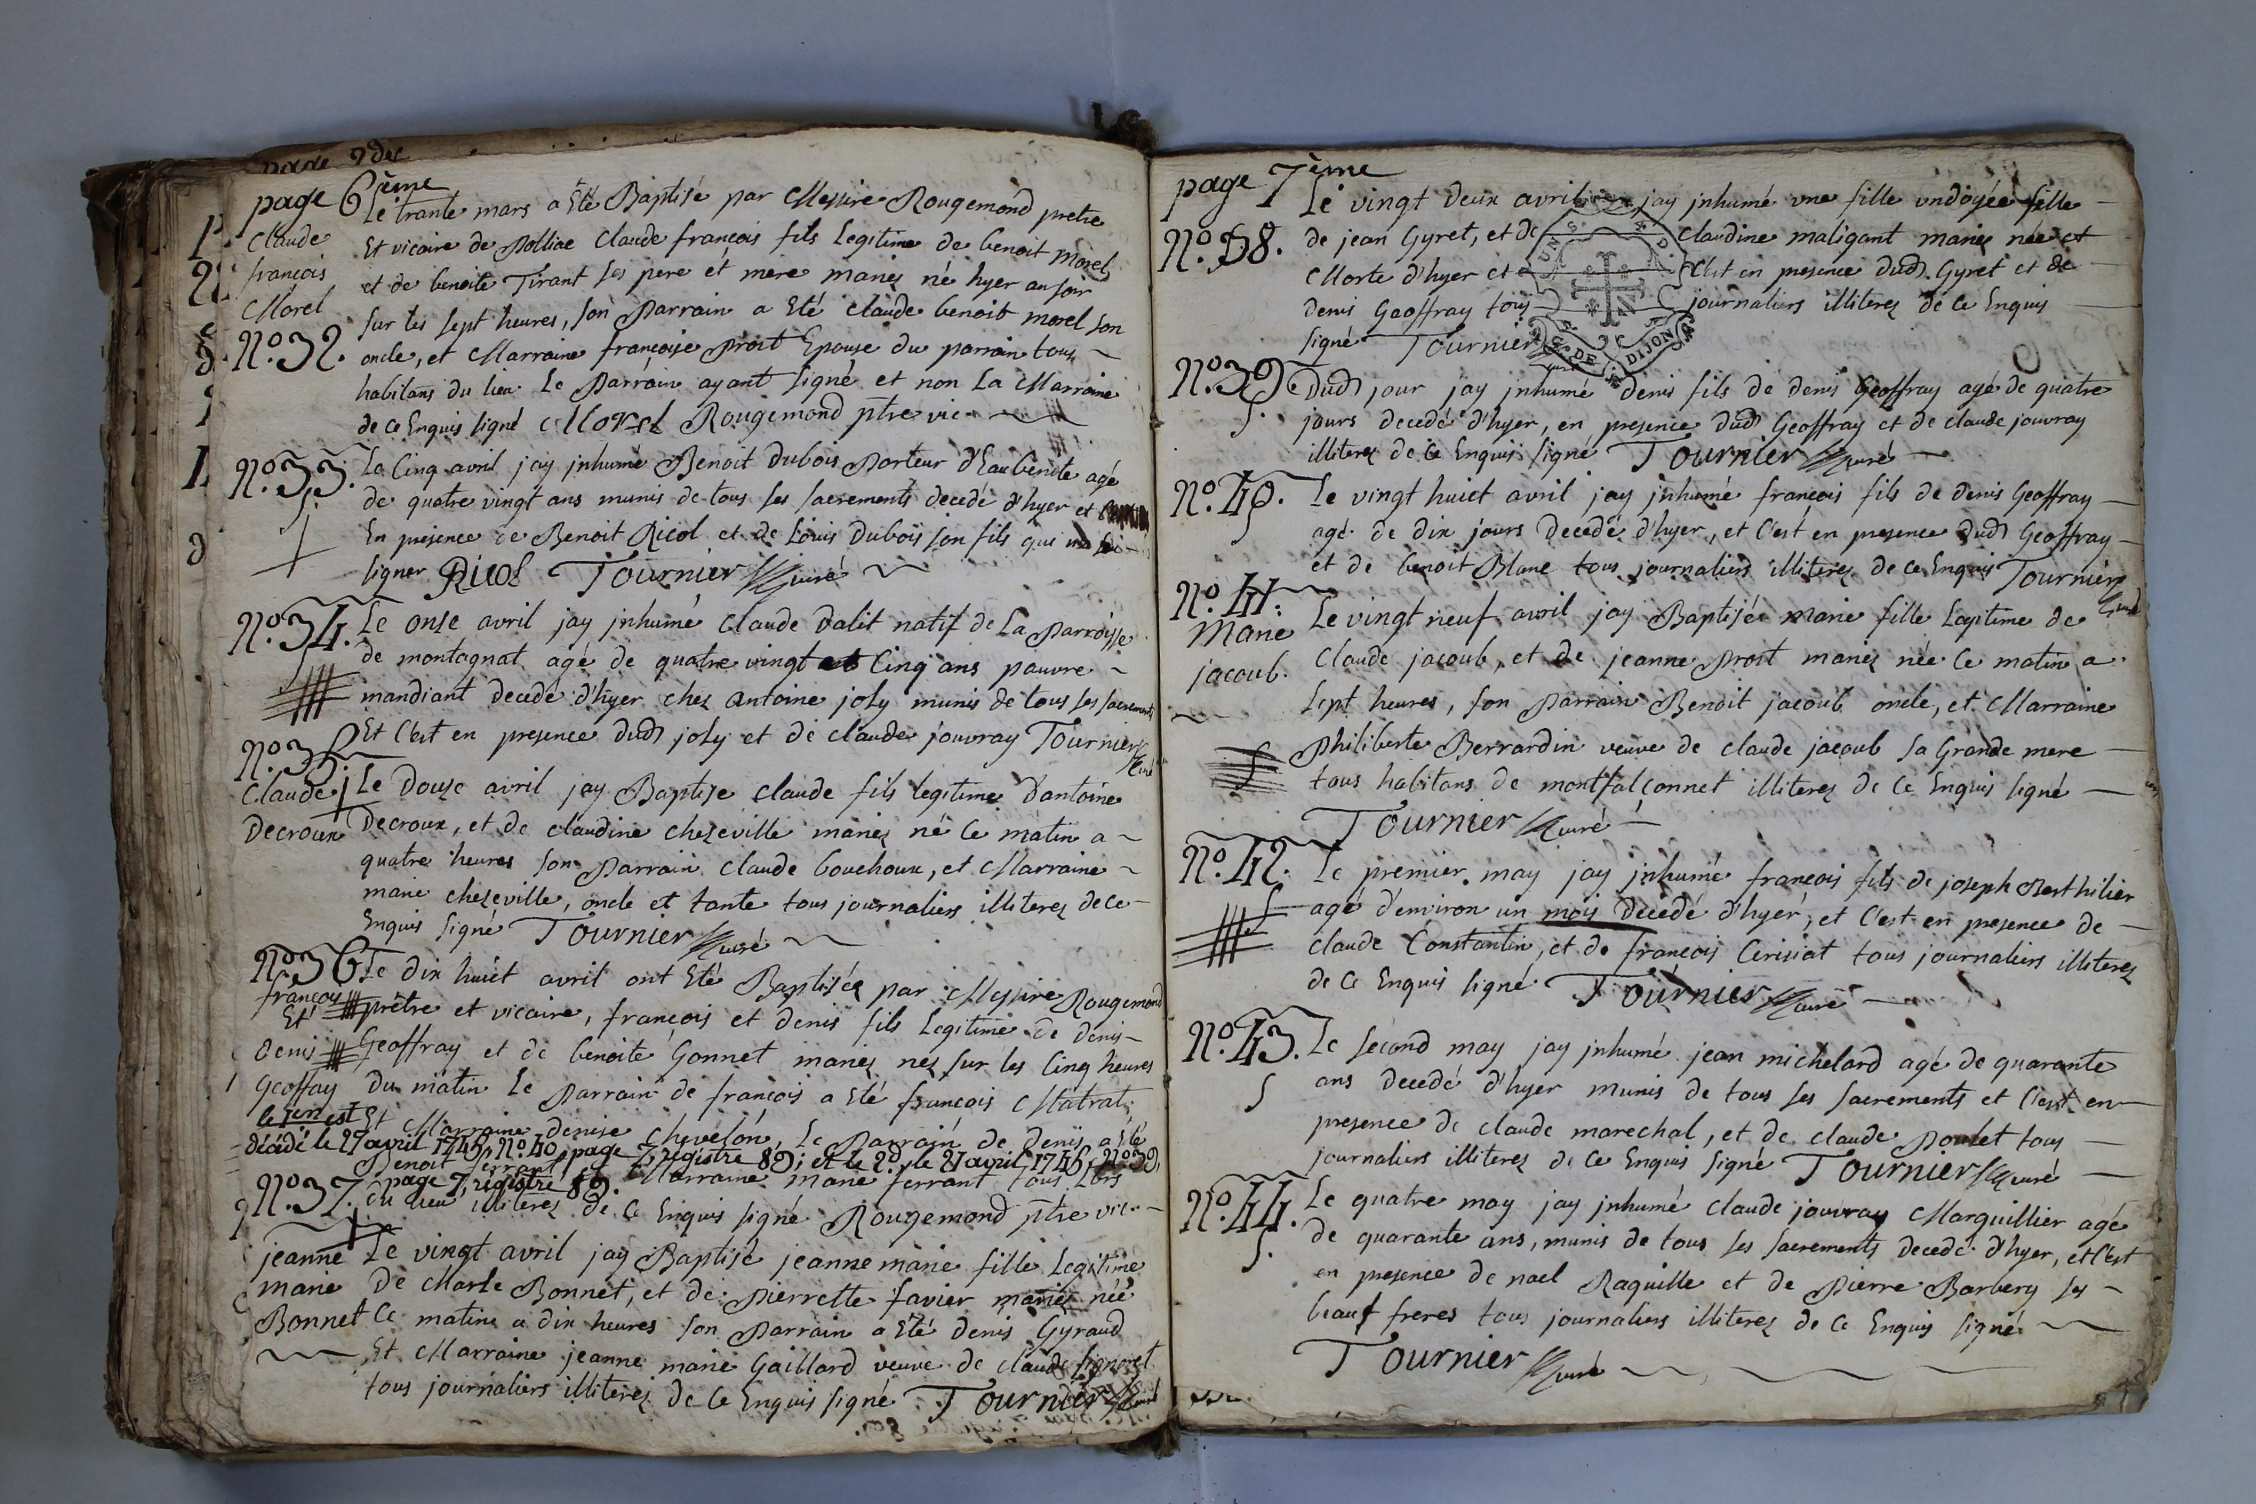 page 2de
page 6ème
Le trante mars a Eté Baptisé par Messire Rougemond pretre
Claude
Et vicaire de Polliac Claude françois fils Legitime de benoit morel
françois
et de benoite Tirant ses pere et mere mariez né hyer au soir
Morel
sur les sept heures, son Parrain a Eté claude benoit morel son
N.° 32.
oncle, et Marraine françoise Proit Epouse du parrain tous
habitans du lieu Le Parrain ayant signé et non La Marraine
de ce Enquis signé Morel Rougemond ptre vic.
N.° 33.
Le Cinq avril jay jnhumé Benoit Dubois Porteur d'Eau benite agé
de quatre vingt ans munis de tous ses sacrements decedé d'hyer et
En presence de Benoit Ricol et de Louis Dubois son fils qui
signer Ricol Tournier curé
N.° 34.
Le onse avril jay jnhumé Claude Dalit natif de La Parroisse
de montagnat agé de quatre vingt et Cinq ans pauvre
mandiant decedé d'hyer chez antoine joly munis de tous ses sacrements
Et C'est en presence dud joly et de claude jouvray Tournier curé
N.° 35.
Claude
Le Douse avril jay Baptise claude fils legitime d'antoine
Decroux
Decroux, et de claudine cheseville mariez né Ce matin a
quatre heures son Parrain claude bouchoux, et Marraine
marie cheseville, oncle et tante tous journaliers illiterez de ce
Enquis signé Tournier curé
N.° 36
Le dix huict avril ont Eté Baptiséz par Messire Rougemond
françois
prêtre et vicaire, françois et denis fils Legitime de denis
Et
Denis
Geoffray et de benoite Gonnet mariez nez sur les Cinq heures
Geoffay
du matin Le Parrain de françois a Eté françois Matrat;
le 1er est
Et Marraine denise chevelon, Le Parrain de denis a Eté
décédé le 27 avril 1746, N.° 40, page 7, registre 89; et le 2d, le 21 avril 1746, N.° 39,
Benoit ferrant, Marraine marie ferrant tous Lors
page 7, registre 89.
N.° 37.
du lieu illiterez de Ce Enquis signé Rougemond ptre vic.
jeanne
Le vingt avril jay Baptisé jeanne marie fille Legitime
marie
De Charle Bonnet, et de Pierrette favier mariez née
Bonnet
Ce matin a dix heures son Parrain a Eté denis Gyraud
Et Marraine jeanne marie Gaillard veuve de claude signoret
tous journaliers illiterez de Ce Enquis signé Tournier curé
page 7ème
Le vingt deux avril jay jnhumé une fille undoyée fille
N.° 38.
de jean Gyret, et de claudine maligant mariez née et
Morte d'hyer et C'est en presence dud. Gyret et de
denis Geoffray tous journaliers illiterez de Ce Enquis
signé Tournier curé
UNG. G. DE DIJON
N.° 39.
Dud jour jay jnhumé denis fils de denis Geoffray agé de quatre
jours decedé d'hyer, en presence dud Geoffray et de claude jouvray
illiterez de Ce Enquis signé Tournier curé
N.° 40.
Le vingt huict avril jay jnhumé françois fils de denis Geoffray
agé de dix jours decedé d'hyer, et C'est en presence dud Geoffray
et de benoit Blanc tous journaliers illiterez de Ce Enquis Tournier curé
N.° 41.
Marie
Le vingt neuf avril jay Baptisée marie fille Legitime de
jacoub.
Claude jacoub, et de jeanne Proit mariez née Ce matin a
sept heures, son Parrain Benoit jacoub oncle, et Marraine
Philiberte Berrardin veuve de claude jacoub sa Grande mere
tous habitans de montfalconnet illiterez de Ce Enquis signé
Tournier curé
N.° 42.
Le premier may jay jnhumé françois fils de joseph Berthilier
agé d'environ un mois Decedé d'hyer, et C'est en presence de
claude Constantin, et de françois Cerisiat tous journaliers illiterez
de Ce Enquis signé Tournier curé
N.° 43.
Le second may jay jnhumé jean michelard agé de quarante
ans decedé d'hyer munis de tous ses sacrements et C'est en
presence de claude marechal, et de claude Poulet tous
journaliers illiterez de Ce Enquis signé Tournier curé
N.° 44.
Le quatre may jay jnhumé claude jouvray Marquillier agé
de quarante ans, munis de tous ses sacrements decedé d'hyer, et C'est
en presence de nael Raquille et de Pierre Barbery ses
beauf freres tous journaliers illiterez de Ce Enquis signé
Tournier curé